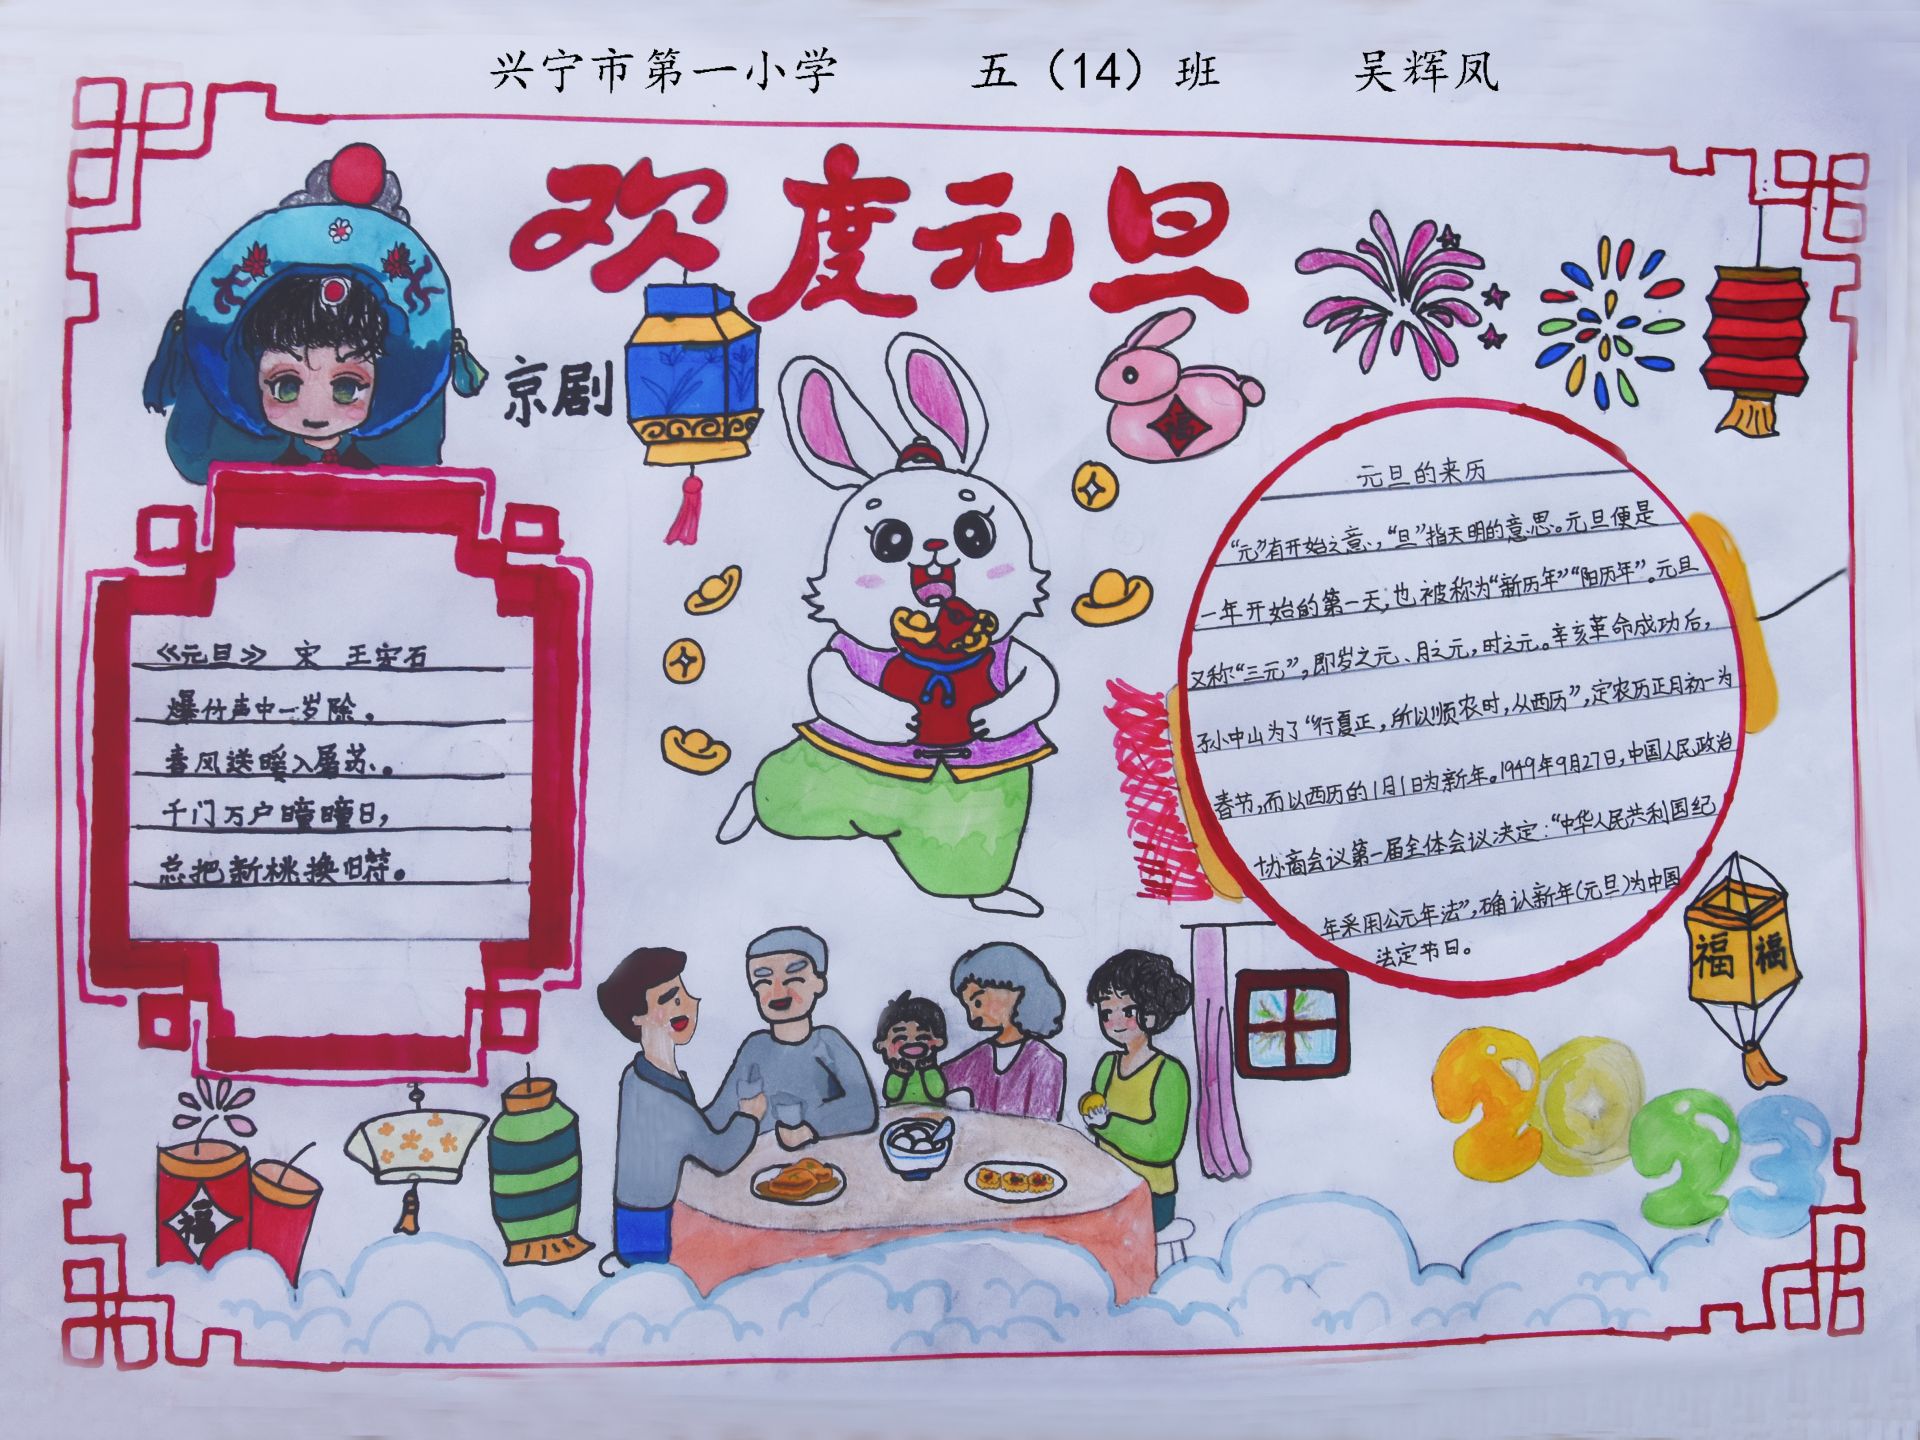 兴宁市第一小学 五（14）班 吴辉凤
欢度元旦
京剧
《元旦》 宋 王安石
爆竹声中一岁除。
春风送暖入屠苏。
千门万户瞳瞳日，
总把新桃换旧符。
福
元旦的来历
“元”有开始之意，“旦”指天明的意思。元旦便是
一年开始的第一天，也被称为“新历年”“阳历年”。元旦
又称“三元”，即岁之元、月之元，时之元。辛亥革命成功后，
孙中山为了“行夏正，所以顺农时，从西历”，定农历正月初一为
春节，而以西历的1月1日为新年。1949年9月27日，中国人民政治
协商会议第一届全体会议决定：“中华人民共和国纪
年采用公元年法”，确认新年（元旦）为中国
法定节日。
福 福
2023
福